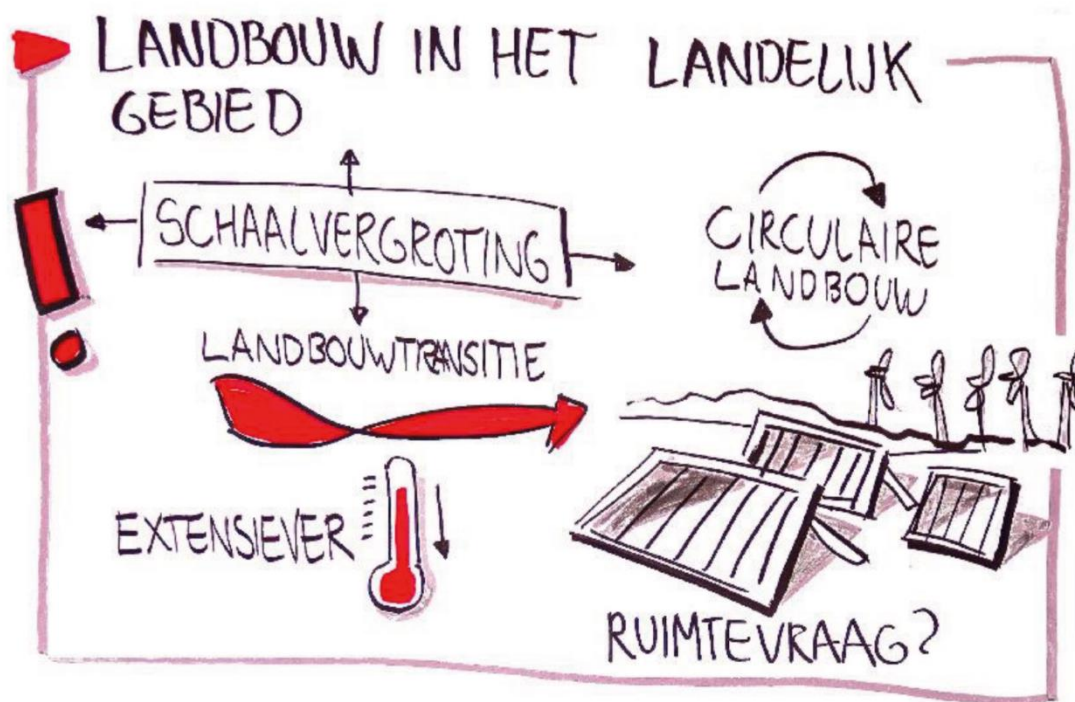 LANDBOUW IN HET LANDELIJK
GEBIED
SCHAALVERGROTING
CIRCULAIRE
LANDBOUW
LANDBOUWTRANSITIE
EXTENSIEVER
RUIMTEVRAAG?